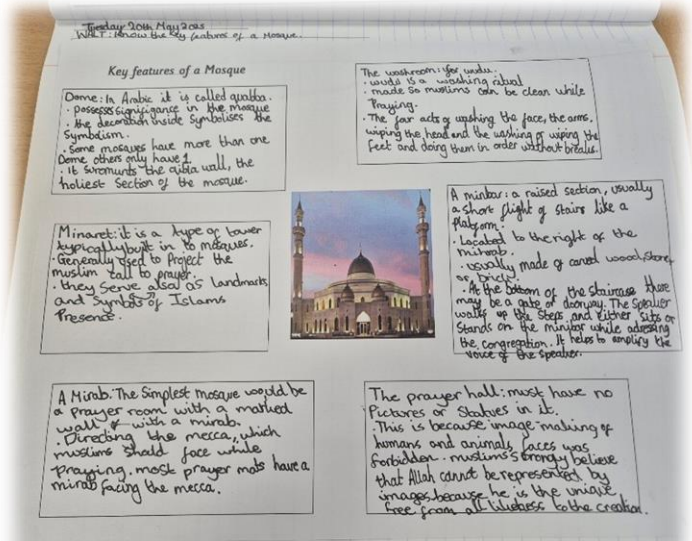 Tuesday 20th May 2025
WALT: Know the key features of a Mosque.
Key features of a Mosque
Dome: In Arabic it is called quabba.
· possesses significance in the mosque
· the decoration inside symbolises the
symbolism.
· Some mosques have more than one
Dome others only have 1
· it surmounts the qibla wall, the
holiest section of the mosque.
The washroom: for wudu.
· wudu is a washing ritual
· made so muslims can be clean while
Praying.
· The four acts of washing the face, the arms,
wiping the head and the washing or wiping the
feet and doing them in order without breaks.
Minaret: it is a type of tower
typically built in to mosques.
· Generally used to Project the
muslim call to prayer.
· they serve also as landmarks
and symbols of Islams
Presence.
A minbar: a raised section, usually
a short flight of stairs like a
platform.
· Located to the right of the
mihrab.
· usually made of carved wood, stone
or brick.
· At the bottom of the staircase there
may be a gate or doorway. The speaker
walks up the steps and either sits or
stands on the minbar while adressing
the congregation. It helps to amplify the
voice of the speaker.
A Mirab: The simplest mosque would be
a prayer room with a marked
wall with a mirab.
· Directing the mecca, which
muslims should face while
praying. most prayer mats have a
mirab facing the mecca.
The prayer hall: must have no
Pictures or Statues in it.
· This is because image-making of
humans and animals faces was
forbidden. muslims strongly believe
that Allah cannot be represented by
images because he is the unique
free from all likeness to the creation.